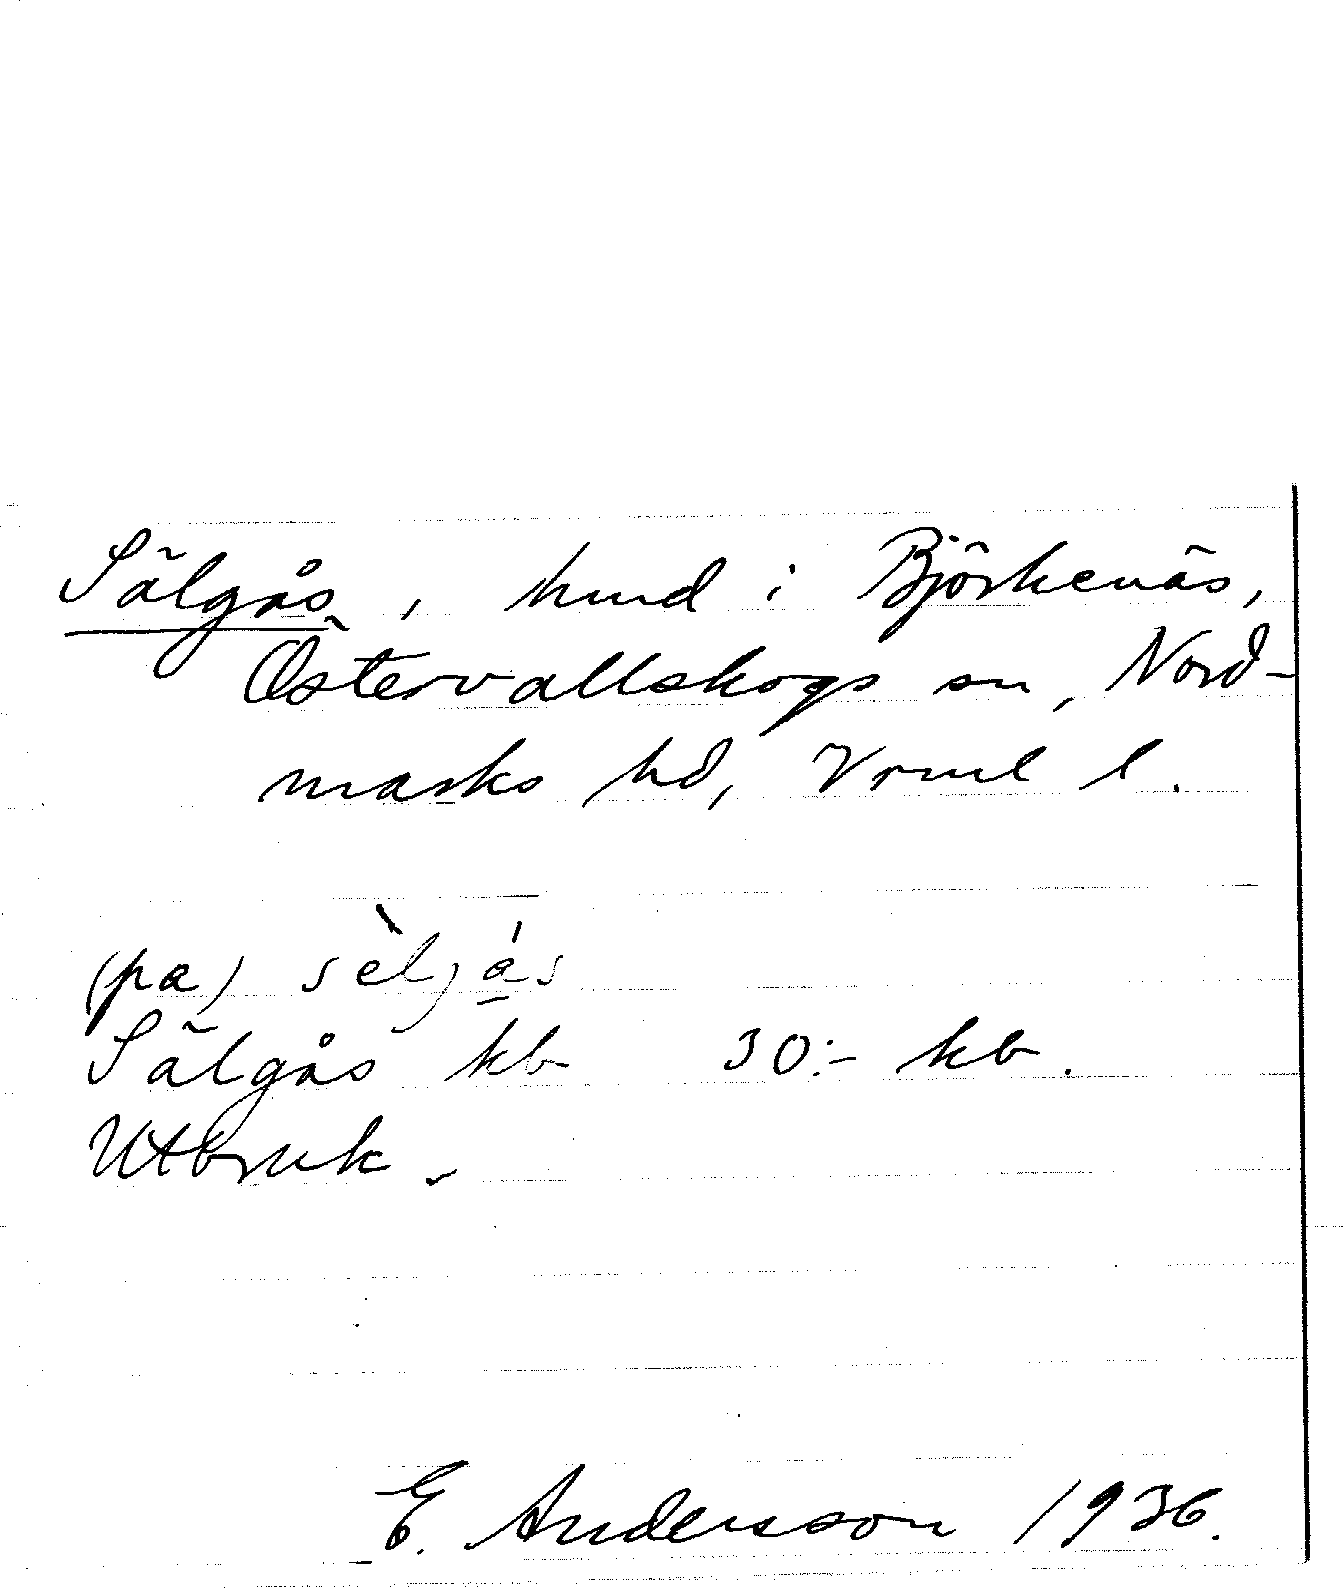 Sälgås, hmd i Björkenäs,
Östervallskogs sn, Nord-
marks hd, Vrml l.
(pa) sèljás
Sälgås kb 30:- kb.
Utbruk.
E. Andersson 1936.